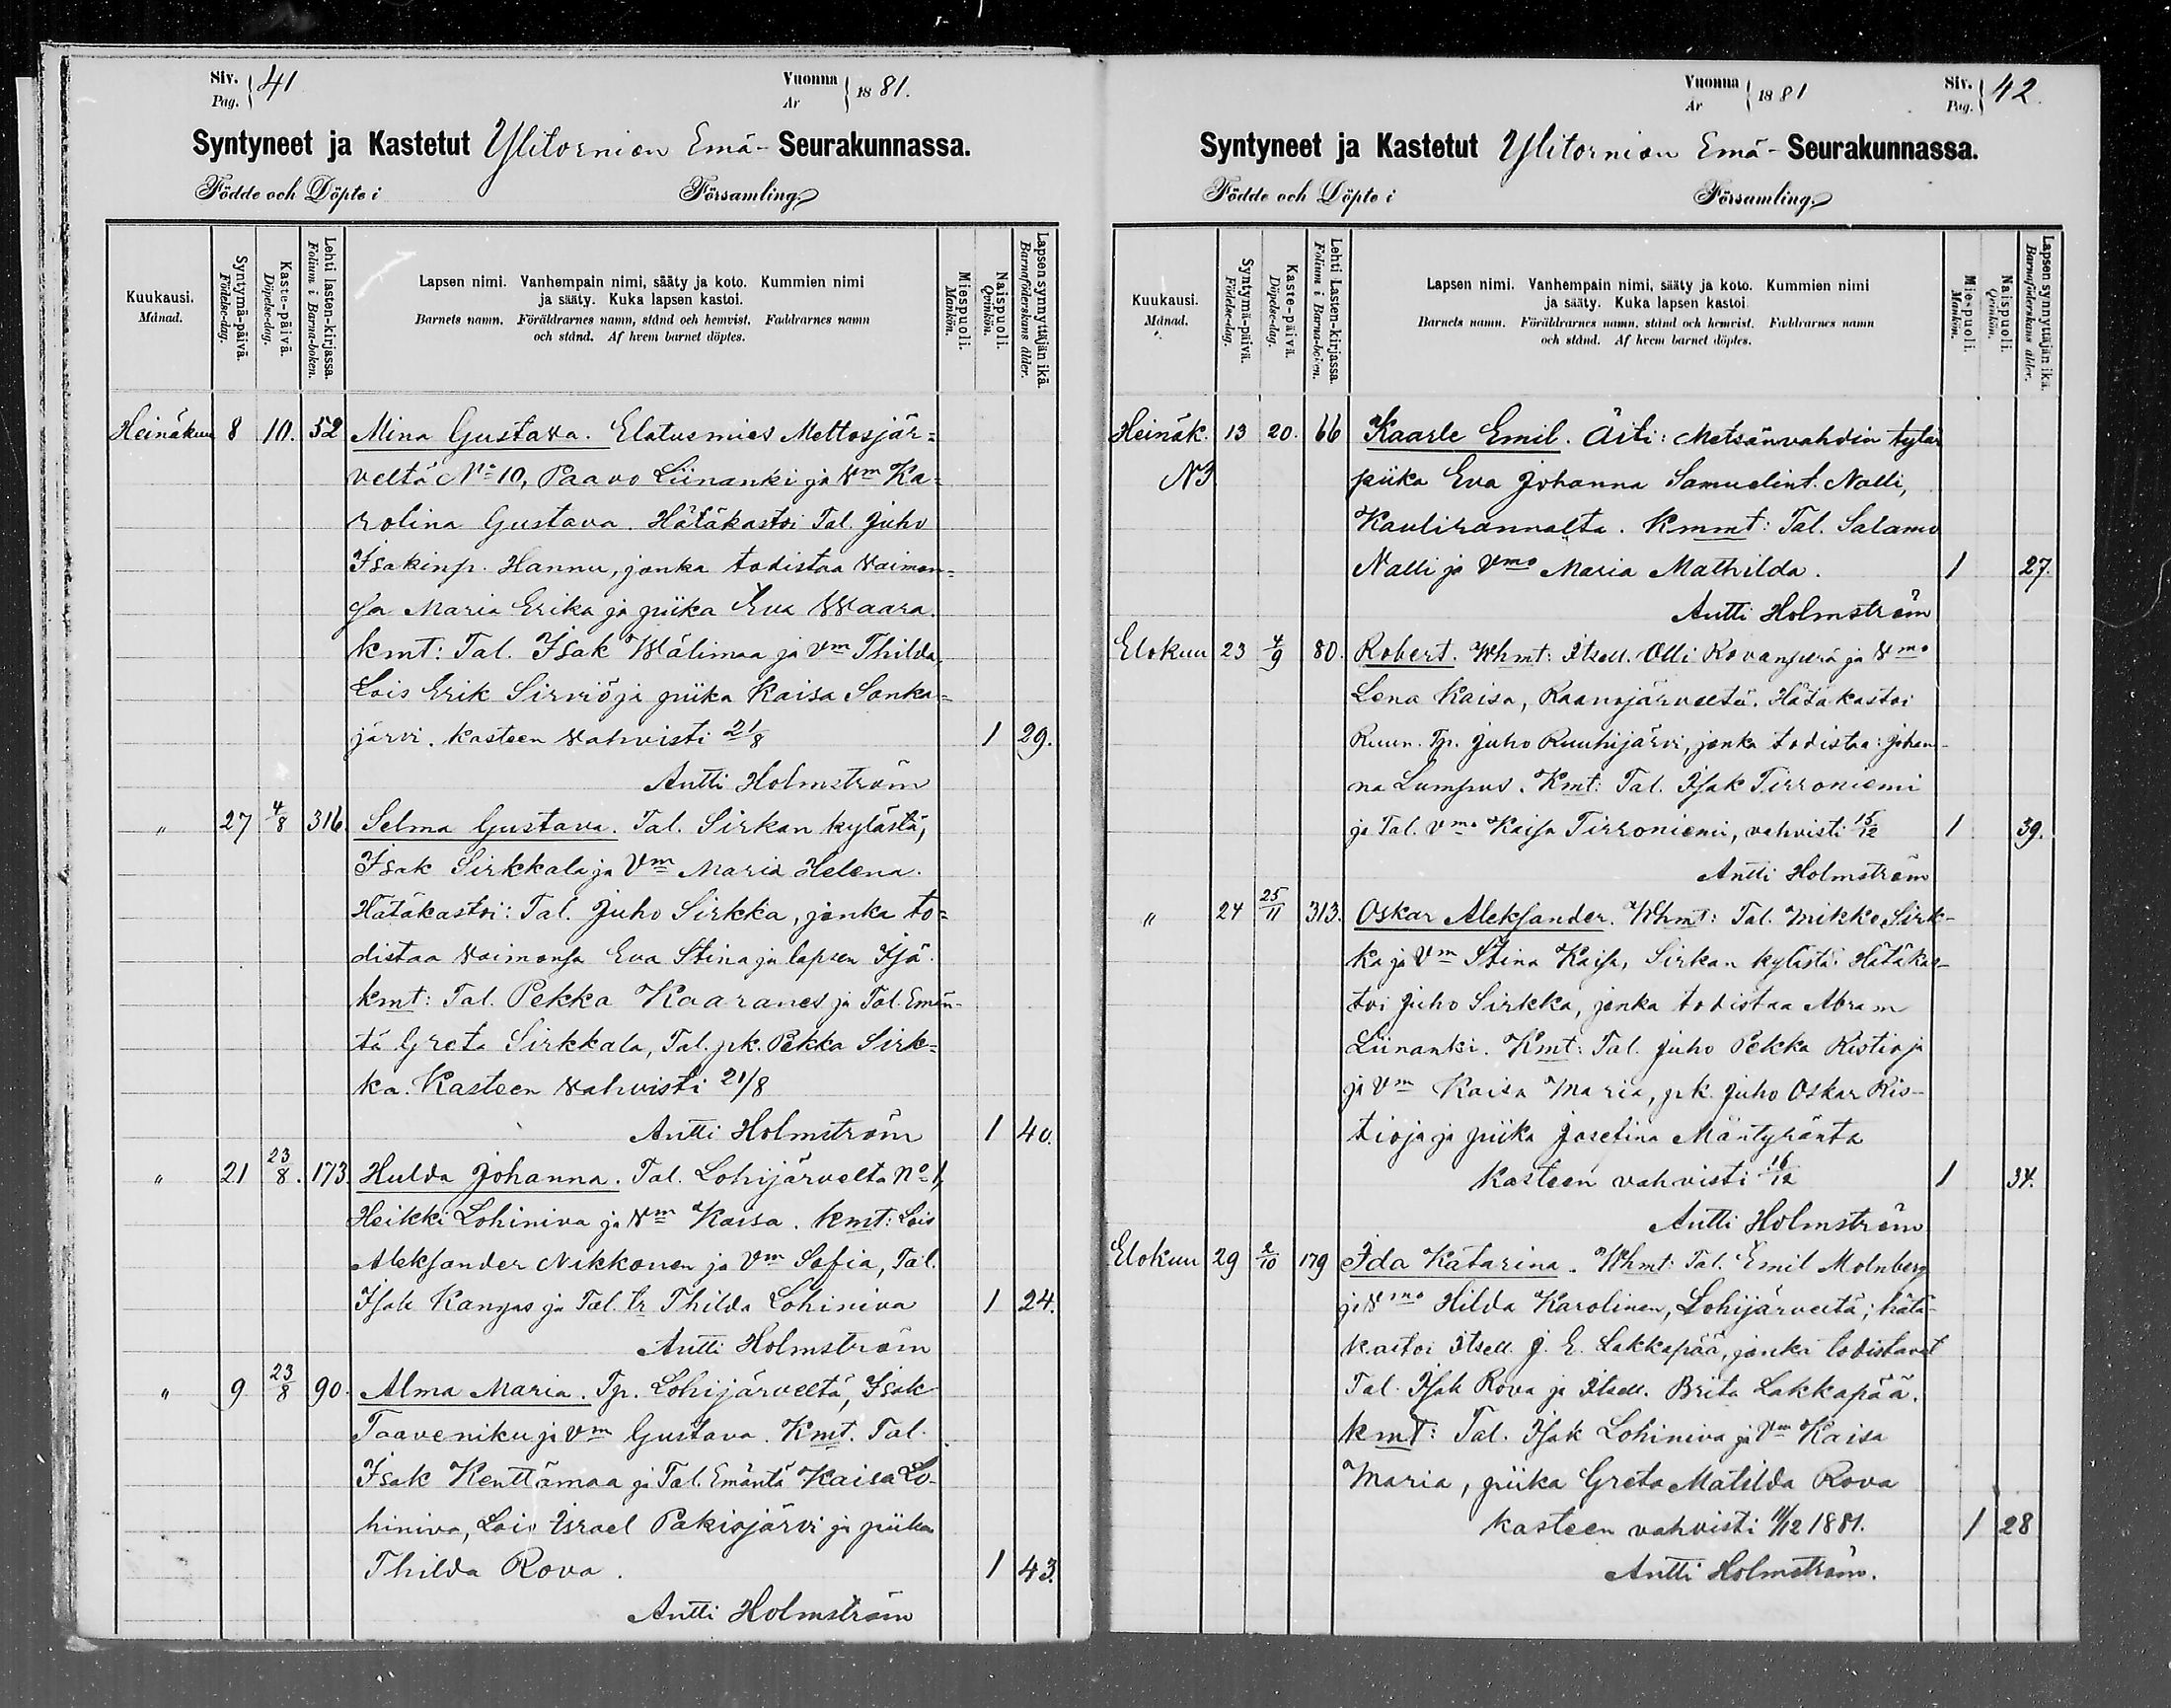 Siv. Pag. 41 Vuonna År 1881.
Syntyneet ja Kastetut Ylitornion Emä- Seurakunnassa.
Födde och Döpte i Församling.
Kuukausi. Månad.
Syntymä-päivä. Födelse-dag.
Kaste-päivä. Döpelse-dag.
Lehti lasten-kirjassa. Folium i Barna-boken.
Lapsen nimi. Vanhempain nimi, sääty ja koto. Kummien nimi
ja sääty. Kuka lapsen kastoi.
Barnets namn. Föräldrarnes namn, stånd och hemvist. Faddrarnes namn
och stånd. Af hvem barnet döptes.
Miespuoli. Mankön.
Naispuoli. Qvinkön.
Lapsen synnyttäjän ikä. Barnaföderskans ålder.
Heinäkuu 8 10. 52 Mina Gustava. Elatusmies Mettosjär=
veltä No 10, Paavo Liinanki ja Vm Ka=
rolina Gustava. Hätäkastoi Tal. Juho
Isakinp. Hannu, jonka todistaa Vaimon=
sa Maria Erika ja piika Eva Waara.
kmt: Tal. Isak Wälimaa ja Vm Thilda,
Lois Erik Sirviö ja piika Kaisa Sonka=
järvi. Kasteen vahvisti 21/8 1 29.
Antti Holmström
" 27 4/8 316. Selma Gustava. Tal. Sirkan kylästä,
Isak Sirkkala ja Vm Maria Helena.
Hätäkastoi: Tal. Juho Sirkka, jonka to=
distaa Vaimonsa Eva Stina ja lapsen Isä.
kmt: Tal. Pekka Kaaranes ja Tal. Emän-
tä Greta Sirkkala, Tal. pk. Pekka Sirk=
ka. Kasteen vahvisti 21/8
Antti Holmström 1 40.
" 21 23/8. 173 Hulda Johanna. Tal. Lohijärveltä No 1,
Heikki Lohiniva ja Vm Kaisa. kmt: Lois
Aleksander Nikkonen ja Vm Sofia, Tal.
Isak Kangas ja Tal. tr Thilda Lohiniva 1 24.
Antti Holmström
" 9 23/8 90. Alma Maria. Tp. Lohijärveltä, Isak
Taaveniku ja Vm Gustava. Kmt. Tal.
Isak Kenttämaa ja Tal. Emäntä Kaisa Lo-
hiniva, Lois Israel Pakisjärvi ja piika
Thilda Rova. 1 43.
Antti Holmström
Vuonna År 1881 Siv. Pag. 42.
Syntyneet ja Kastetut Ylitornion Emä- Seurakunnassa.
Födde och Döpte i Församling.
Kuukausi. Månad.
Syntymä-päivä. Födelse-dag.
Kaste-päivä. Döpelse-dag.
Lehti Lasten-kirjassa. Folium i Barna-boken.
Lapsen nimi. Vanhempain nimi, sääty ja koto. Kummien nimi
ja sääty. Kuka lapsen kastoi
Barnets namn. Föräldrarnes namn, stånd och hemvist. Faddrarnes namn
och stånd. Af hvem barnet döptes.
Miespuoli. Mankön.
Naispuoli. Qvinkön.
Lapsen synnyttäjän ikä. Barnaföderskans ålder.
Heinäk. 13 20. 66 Kaarle Emil. Äiti: Metsänvahdin tytär
piika Eva Johanna Samuelint. Nalli,
Kaulirannalta. Kmmt: Tal. Salamo
Nalli ja Vmo Maria Mathilda. 1 27.
Antti Holmström
Elokuu 23 4/9 80. Robert. Whmt: Itsell. Olli Rovanperä ja Vmo
Lena Kaisa, Raanujärveltä. Hätäkastoi
Ruun. Tp. Juho Ruuhijärvi, jonka todistaa: Johan-
na Lumpus. Kmt: Tal. Isak Tirroniemi
ja Tal. Vmo Kaisa Tirroniemi, vahvisti 15/12 1 39.
Antti Holmström
" 24 25/11 313. Oskar Aleksander. Whmt: Tal. Mikko Sirk-
ka ja Vm Stina Kaisa, Sirkan kylästä. Hätäkas-
toi Juho Sirkka, jonka todistaa Abram
Liinanki. Kmt: Tal. Juho Pekka Ristioja
ja Vm Kaisa Maria, pk. Juho Oskar Ris-
tioja ja piika Josefina Mäntyränta
Kasteen vahvisti 16/12 1 34.
Antti Holmström
Elokuu 29 2/10 179 Ida Katarina. Whmt: Tal. Emil Molnberg
ja Vmo Hilda Karolinan, Lohijärveltä; hätä-
kastoi Itsell. J. E. Lakkapää, jonka todistavat
Tal. Isak Rova ja Itsell. Brita Lakkapää.
kmt: Tal. Isak Lohiniva ja Vm Kaisa
Maria, piika Greta Matilda Rova
kasteen vahvisti 11/12 1881. 1 28
Antti Holmström.